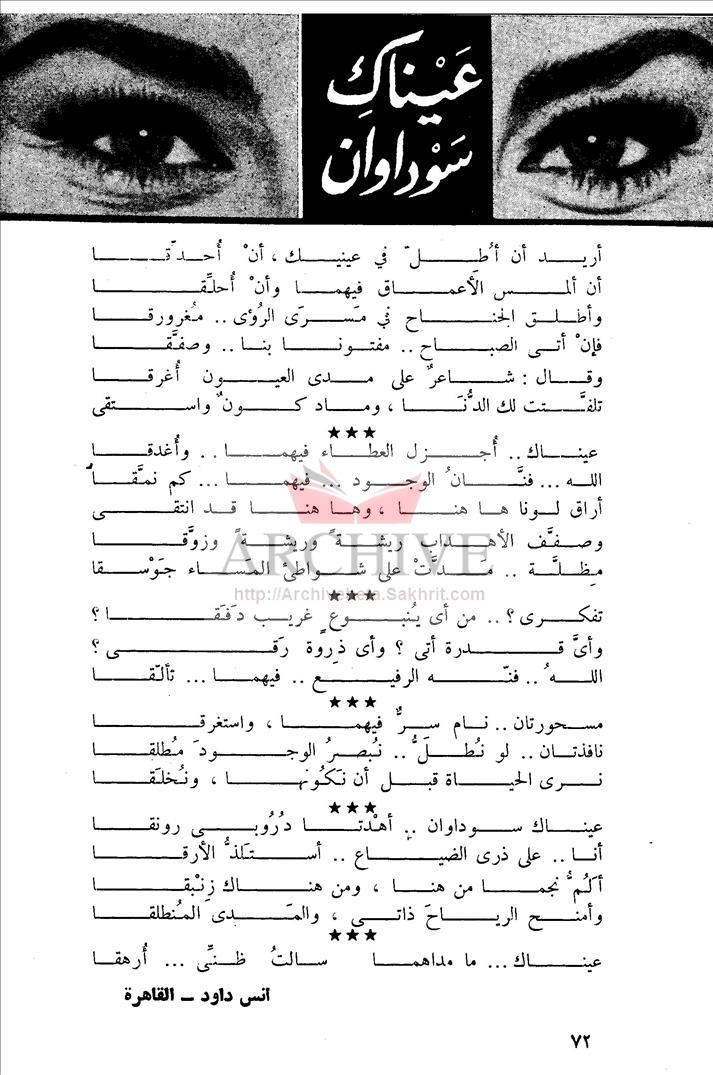 عَيْناكِ
سَوْداوان
أريد أن أُطلّ في عينيك ، أنْ أُحدّقا
أن ألمس الأعماق فيهما وأنْ أُحلِّقا
وأطلق الجناح في مَسرَى الرُؤى .. مُغرورقا
فإنْ أتى الصباح .. مفتونا بنا .. وصفَّقا
وقال : شاعرٌ على مدى العيون أُغرقا
تلفَّتت لك الدُّنَا ، وماد كونٌ واستقى
★★★
عيناك .. أُجزل العطاء فيهما .. وأُغدقا
الله ... فنَّانُ الوجود ... فيهما ... كم نمَّقا
أراق لونا ها هنا ، وها هنا قد انتقى
وصفَّف الأهداب ريشةً وريشةً وزوَّقا
مِظلَّة .. مَدَّتْ على شواطئ المَسَاء جَوْسقا
ARCHIVE
http://Archivebeta.Sakhrit.com
★★★
تفكرى ؟ .. من أى يُنبوعٍ غريب دَفَقا ؟
وأىَّ قدرة أتى ؟ وأى ذِروة رَقى ؟
اللهُ .. فنّه الرفيع .. فيهما ... تألّقا
★★★
مسحورتان .. نام سرٌّ فيهما ، واستغرقا
نافذتان .. لو نُطلُّ .. نُبصرُ الوجودَ مُطلقا
نرى الحياة قبل أن نَكُونها ، ونُخلَقا
★★★
عيناك سوداوان .. أهْدتا دُرُوبى رونقا
أنا .. على ذرى الضياع .. أستَلذُّ الأرقا
ألمُّ نجما من هنا ، ومن هناك زنْبقا
وأمنح الرياحَ ذاتى ، والمَدى المُنطلقا
★★★
عيناك ... ما مداهما سالتُ ظنِّى ... أُرهقا
أنس داود – القاهرة
٧٢